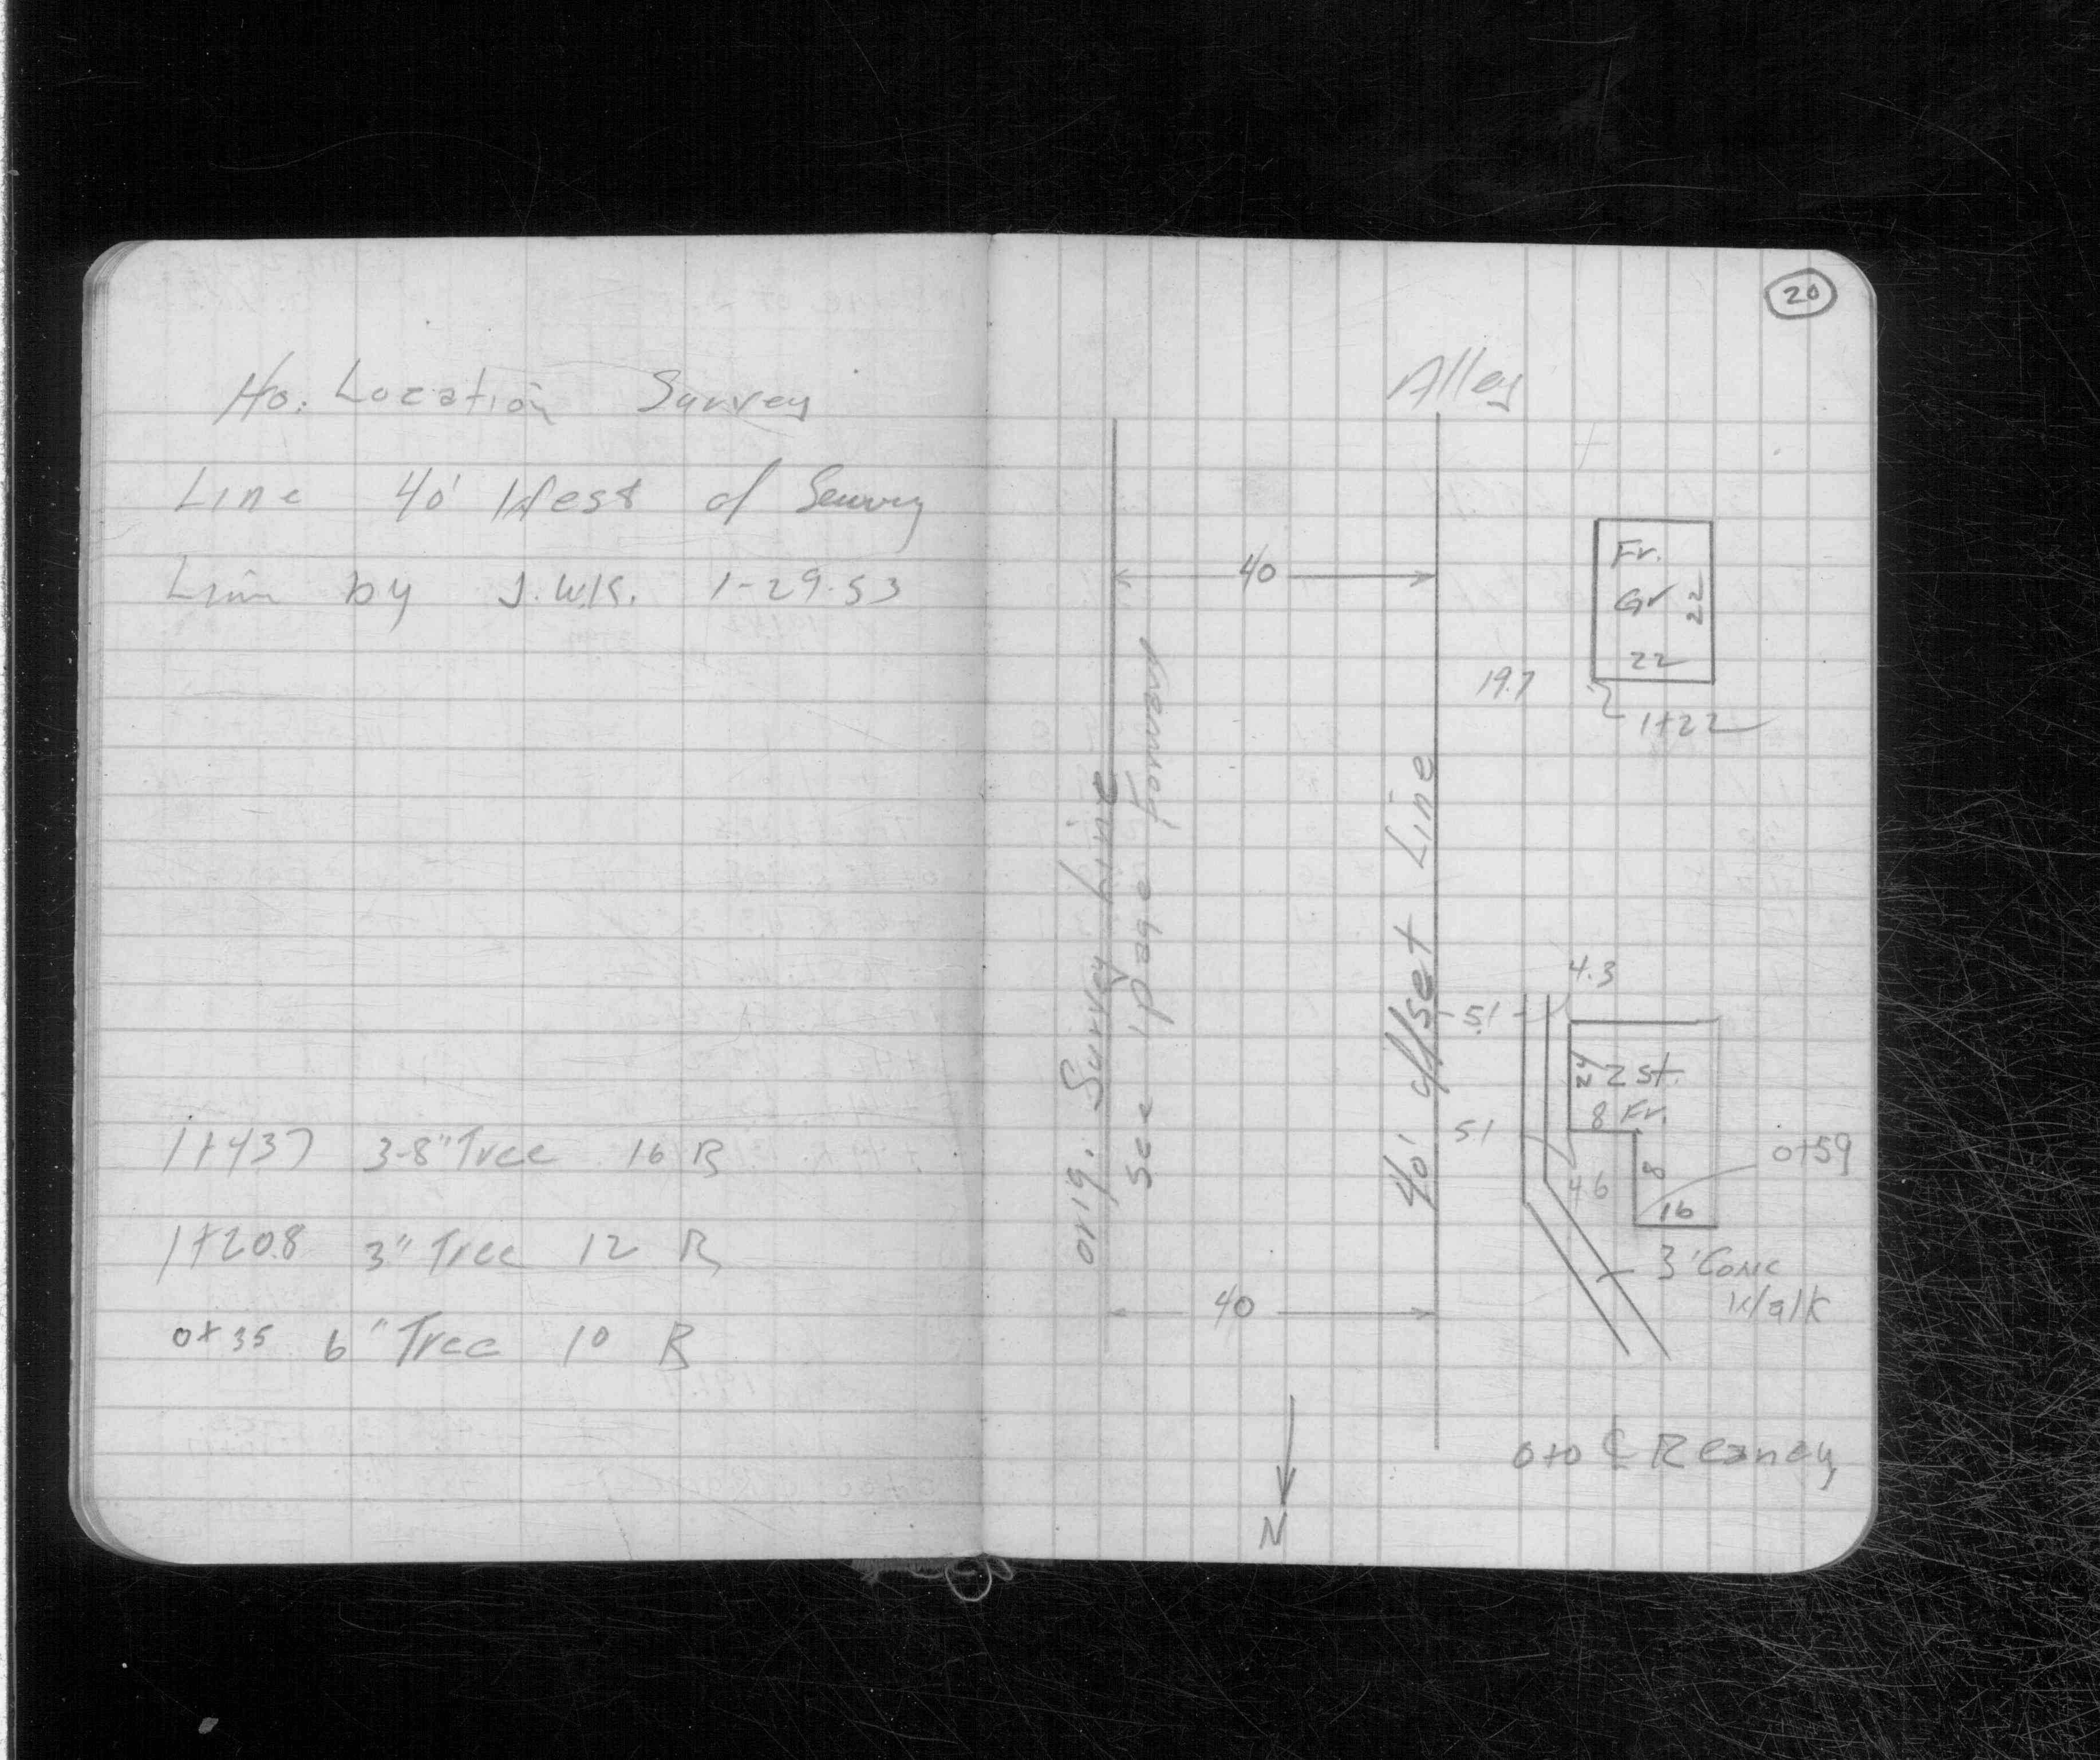 Ho. Location Survey
Line 40' West of Survey
Line by J.W.K. 1-29-53
1+437 3-8" Tree 16 R
1+20.8 3" Tree 12 R
0+35 6" Tree 10 R
20
Alley
40
Fr.
Gr 22
22
19.7
1+22
Orig. Survey Line
See 1 page Forward
40' offset Line
4.3
5.1
24 2 st.
8 Fr.
51
8
0+59
4.6
16
3' Conc
Walk
40
0+0 ℄
N